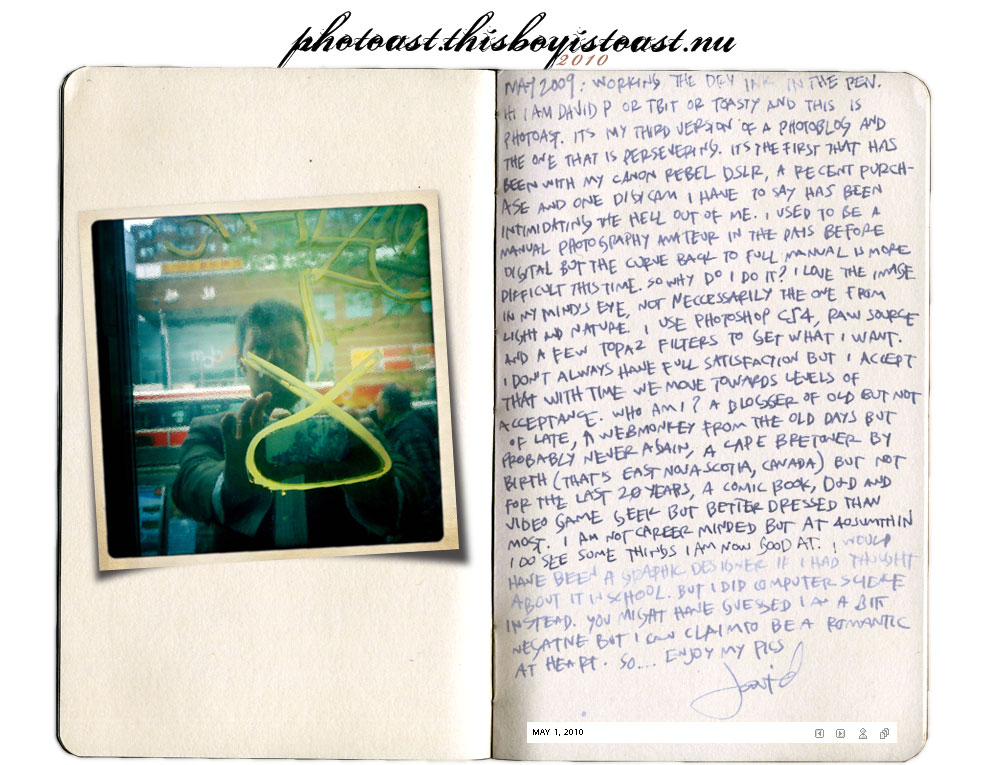 photoast.thisboyistoast.nu
2010
MAY 2009: WORKING THE DRY INK IN THE PEN.
HI I AM DAVID P OR TBIT OR TOASTY AND THIS IS
PHOTOAST. ITS MY THIRD VERSION OF A PHOTOBLOG AND
THE ONE THAT IS PERSEVERING. ITS THE FIRST THAT HAS
BEEN WITH MY CANON REBEL DSLR, A RECENT PURCH-
ASE AND ONE DIGICAM I HAVE TO SAY HAS BEEN
INTIMIDATING THE HELL OUT OF ME. I USED TO BE A
MANUAL PHOTOGRAPHY AMATEUR IN THE DAYS BEFORE
DIGITAL BUT THE CURVE BACK TO FULL MANUAL IS MORE
DIFFICULT THIS TIME. SO WHY DO I DO IT? I LOVE THE IMAGE
IN MY MINDYS EYE, NOT NECCESSARILY THE ONE FROM
LIGHT AND NATURE. I USE PHOTOSHOP CS4, RAW SOURCE
AND A FEW TOPAZ FILTERS TO GET WHAT I WANT.
I DON'T ALWAYS HAVE FULL SATISFACTION BUT I ACCEPT
THAT WITH TIME WE MOVE TOWARDS LEVELS OF
ACCEPTANCE. WHO AM I? A BLOGGER OF OLD BUT NOT
OF LATE, A WEBMONKEY FROM THE OLD DAYS BUT
PROBABLY NEVER AGAIN, A CAPE BRETONER BY
BIRTH (THAT'S EAST NOVA SCOTIA, CANADA) BUT NOT
FOR THE LAST 20 YEARS, A COMIC BOOK, D&D AND
VIDEO GAME GEEK BUT BETTER DRESSED THAN
MOST. I AM NOT CAREER MINDED BUT AT 40SUMTHIN
I DO SEE SOME THINGS I AM NOW GOOD AT. I WOULD
HAVE BEEN A GRAPHIC DESIGNER IF I HAD THOUGHT
ABOUT IT IN SCHOOL. BUT I DID COMPUTER SCIENCE
INSTEAD. YOU MIGHT HAVE GUESSED I AM A BIT
NEGATIVE BUT I CAN CLAIM TO BE A ROMANTIC
AT HEART. SO... ENJOY MY PICS
David
MAY 1, 2010